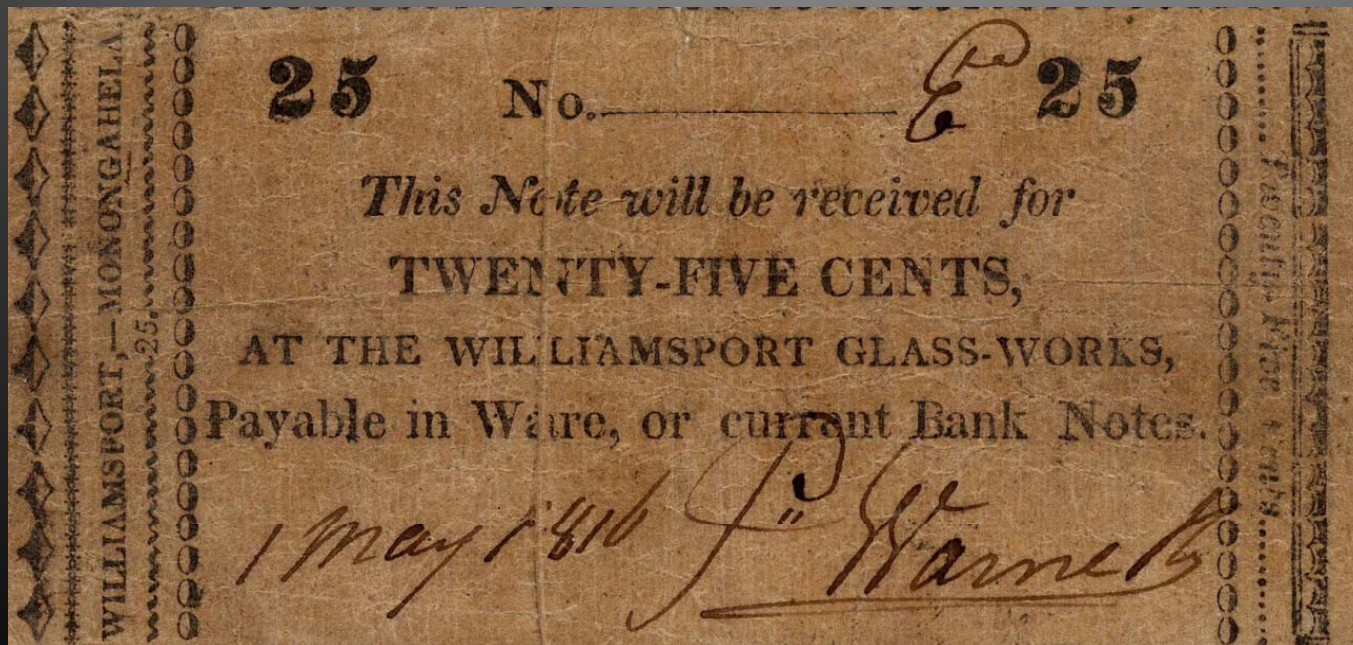 WILLIAMSPORT,—MONONGAHELA.
25.
25 No. 25
This Note will be received for
TWENTY-FIVE CENTS,
AT THE WILLIAMSPORT GLASS-WORKS,
Payable in Ware, or current Bank Notes.
1 May 1816 Warne
Twenty-Five Cents